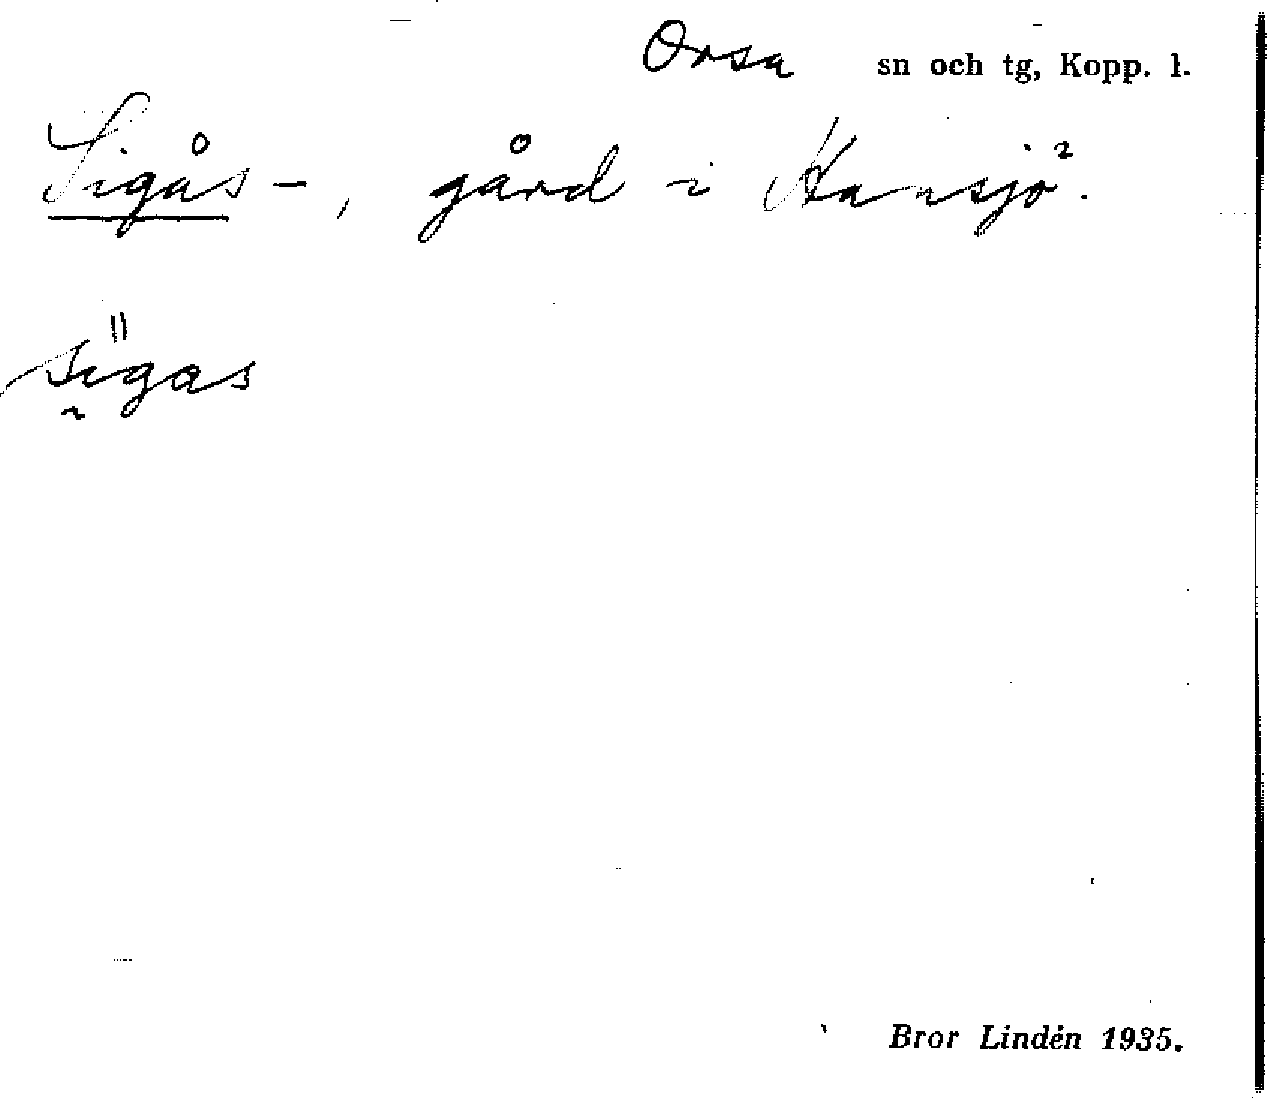 Orsa sn och tg, Kopp. l.
Sigås-, gård i Hansjö.
sigas
Bror Lindén 1935.